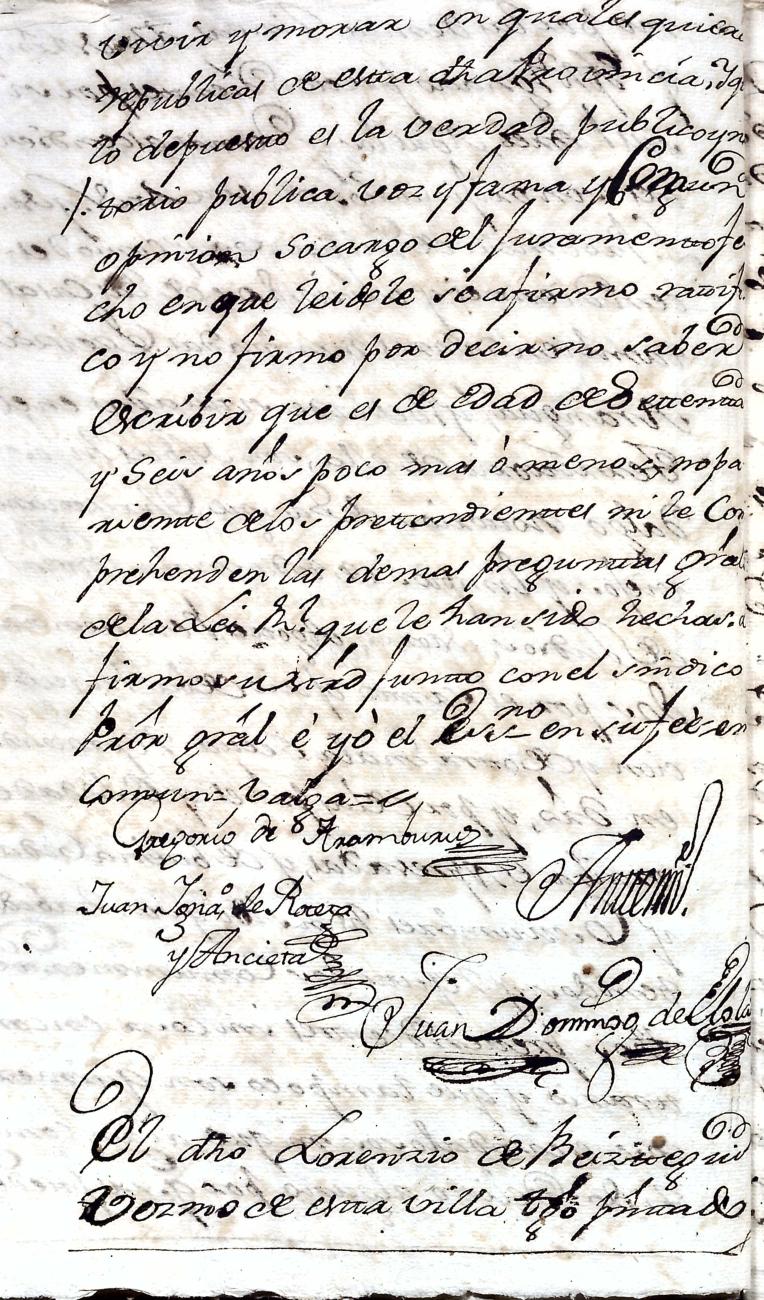 vivir y morar en quales quiera
republicas de esta dha Provincia, y q
lo depuesto es la verdad publico y no
torio publica voz y fama y Comun
opinion socargo del Juramento fe
cho en que leidole se afirmo ratifi
co y no firmo por decir no saber
escribir que es de edad de Settenta
y Seis años poco mas ò menos, no pa
riente de los prettendienttes ni le Com
prehenden las demas preguntas grâl
de la Lei Rl. que le han sido hechas.
firmo su mrd junto con el sindico
Prôr grâl è yò el Essno en su feè=en
Comun=Valga=
Gregorio de Aramburu
Antemi.
Juan Ignao. de Roteta
y Ancieta
Juan Domingo de Elola
El dho Lorenzio de Beizttegui
Vezino de estta villa tgo. pñtado